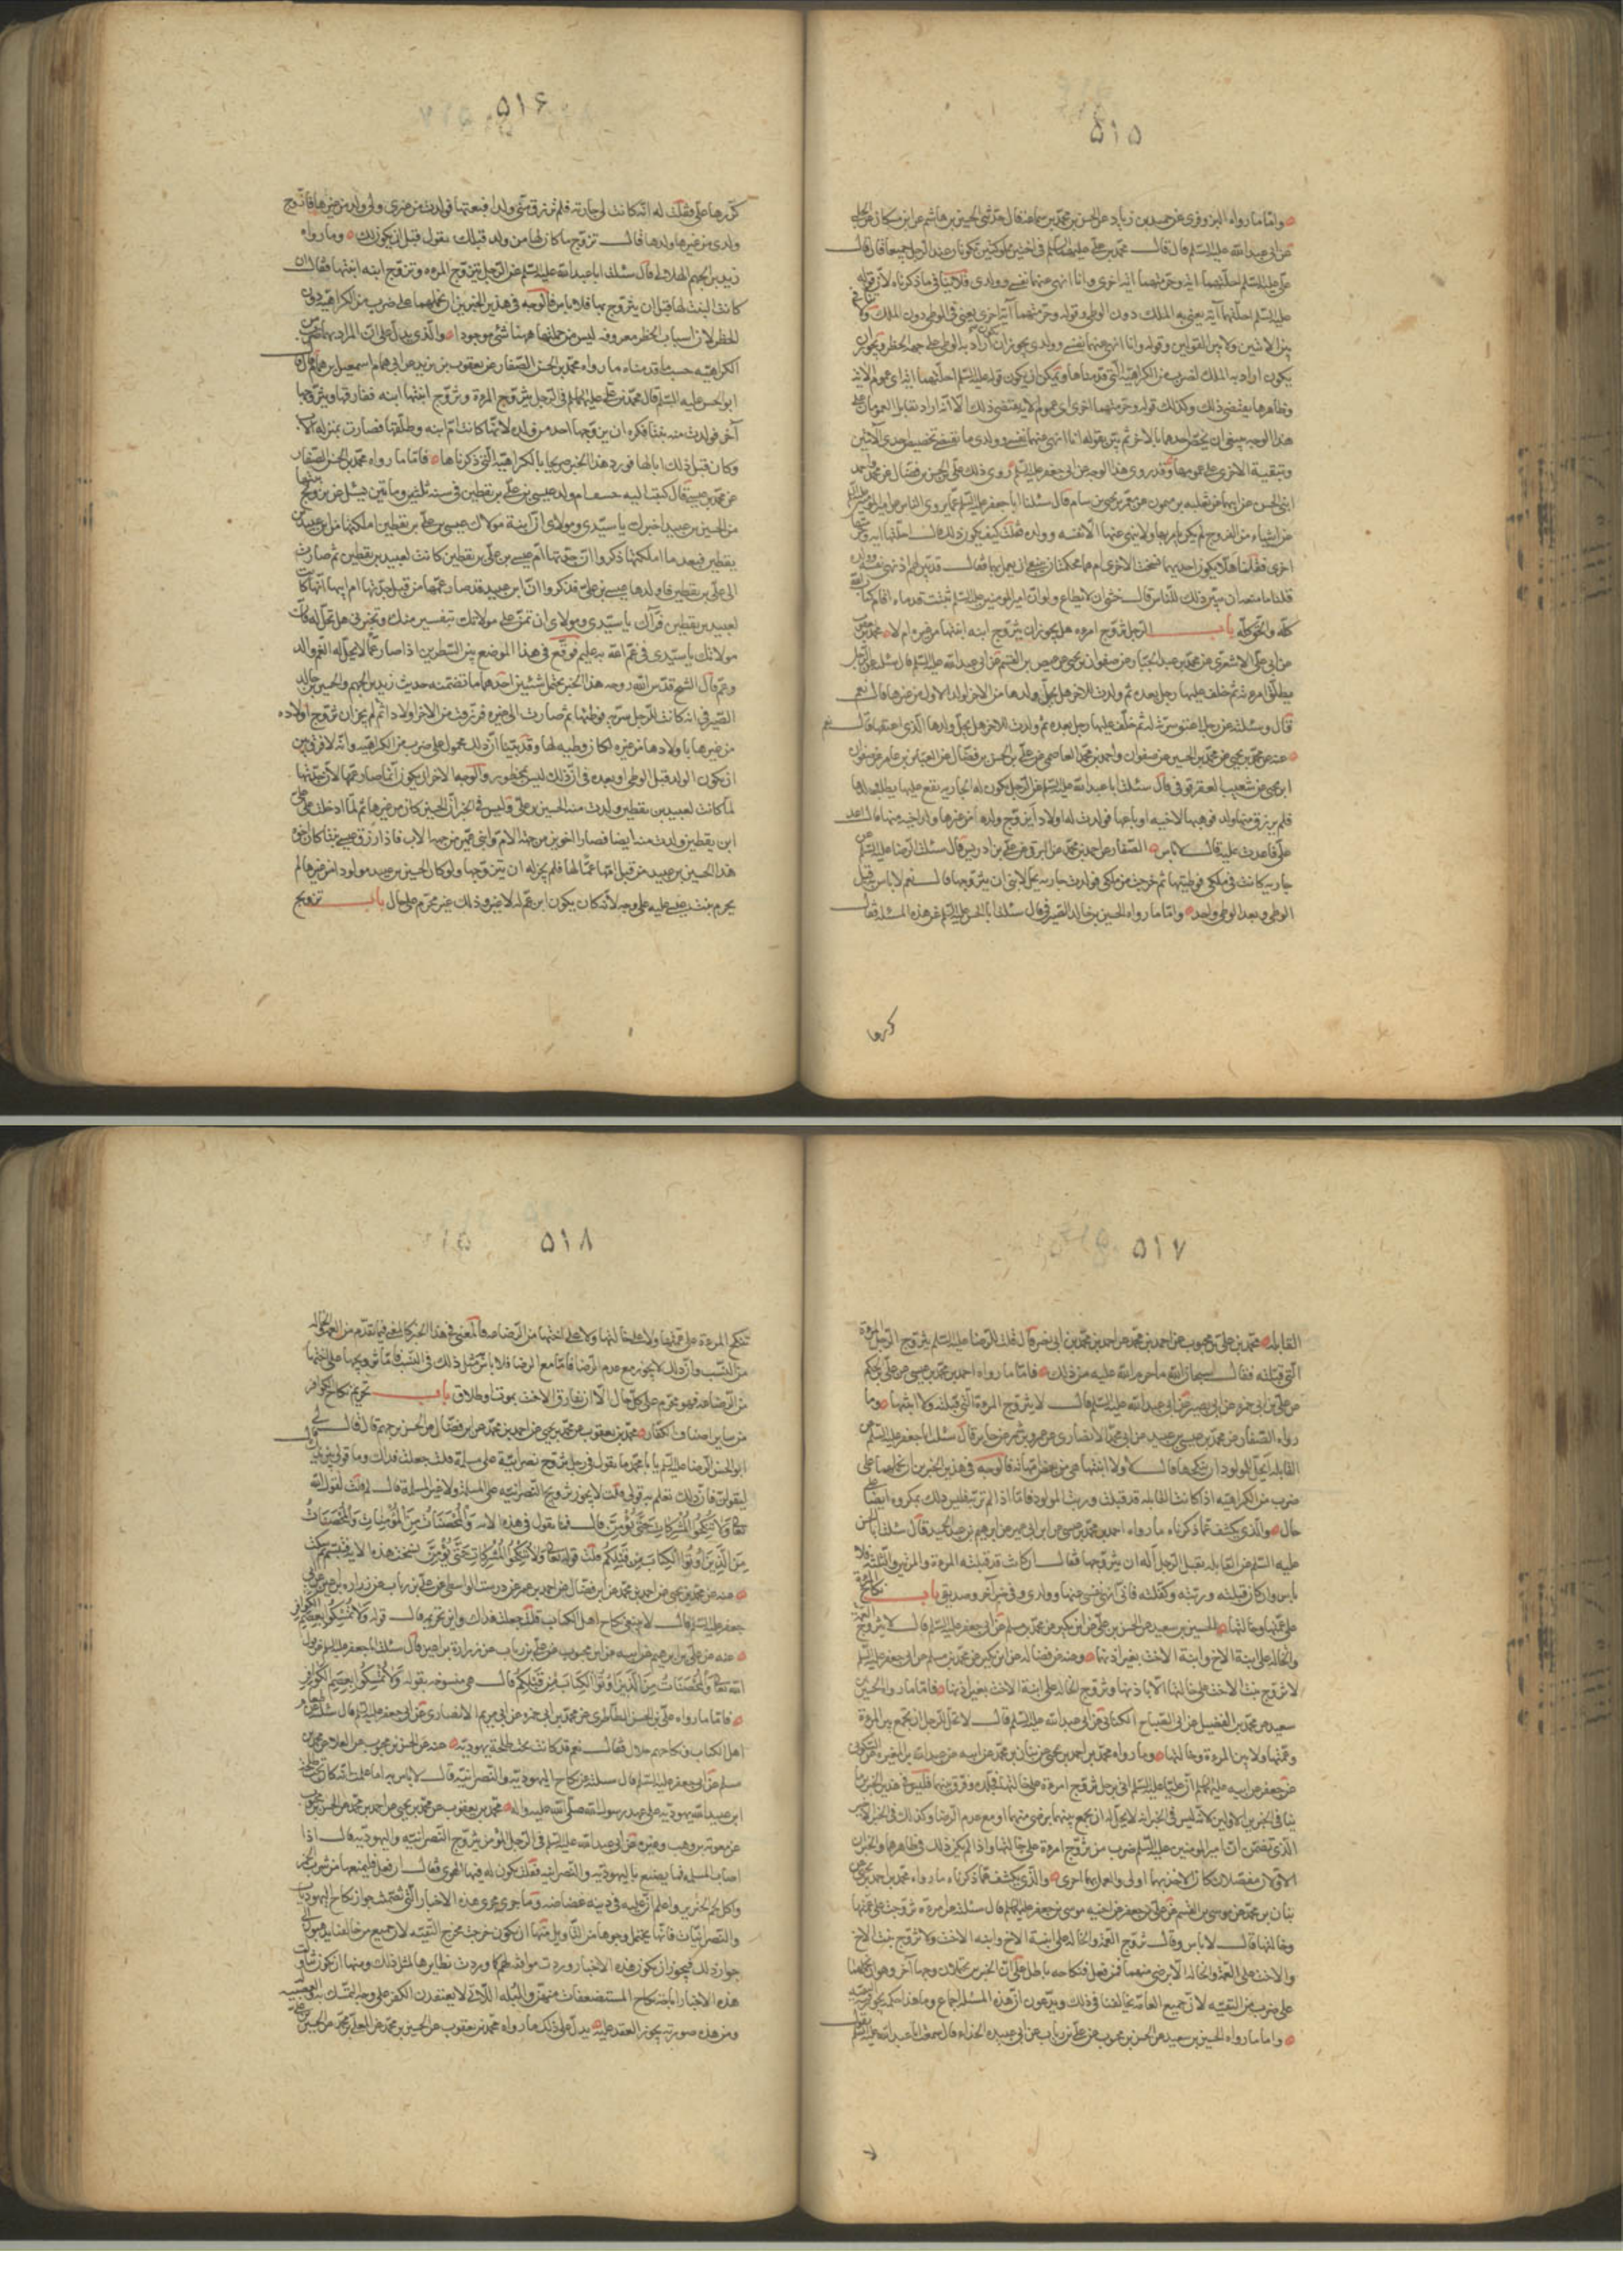 ۵۱۵
واما ما رواه البزوفری عن حمید بن زیاد عن الحسن بن محمد بن سماعه قال حدثنی الحسین بن هاشم عن ابن مسکان عن الحلبی
عن ابی عبدالله علیه السلم قال قال محمد بن علی علیهما السلم فی اختین مملوکتین تکونان عند الرجل جمیعا قال قال
علی علیه السلم احلتهما آیة وحرمتهما آیة اخری وانا انهی عنهما نفسی وولدی فلا ینافی ما ذکرناه لان قوله
علیه السلم احلتهما آیة یعنی به الملک دون الوطی وقوله وحرمتهما آیة اخری یعنی فی الوطی دون الملک ولا تنافی
بین الایتین ولا بین القولین وقوله وانا انهی عنهما نفسی وولدی یجوز ان یکون اراد به الوطی علی جهة الحظر ویجوز ان
یکون اراد به الملک لضرب من الکراهیة التی قدمناها ویمکن ان یکون قوله علیه السلم احلتهما آیة ای عموم الایة
وظاهرها یقتضی ذلک وکذلک قوله وحرمتهما اخری ای عموم الایة یقتضی ذلک الا انه اذا تقابل العمومان علی
هذا الوجه ینبغی ان یخص احدهما بالاخر ثم بین بقوله انا انهی عنهما نفسی وولدی ما یقتضی تخصیص احدی الآیتین
وتبقیة الاخری علی عمومها وقد روی هذا الوجه عن ابی جعفر علیه السلم روی ذلک علی بن الحسن بن فضال عن محمد واحمد
ابنی الحسن عن ابیهما عن ثعلبة بن میمون عن معمر بن یحیی بن سام قال سئلنا ابا جعفر علیه السلم عما یروی الناس عن امیر المؤمنین
عن اشیاء من الفروج لم یکن یامر بها ولا ینهی عنها الا نفسه وولده فقلنا کیف یکون ذلک قال احلتها آیة وحرمتها
اخری فقلنا هل الا یکون احدیهما نسخت الاخری ام هما محکمتان ینبغی ان یعمل بهما فقال قد بین لهم اذ نهی نفسه وولده
قلنا ما منعه ان یبین ذلک للناس قال خشی ان لا یطاع ولو ان امیر المومنین علیه السلم ثبتت قدماه اقام کتاب الله
کله والحق کله باب الرجل یتزوج امرءه هل یجوز ان یتزوج ابنه ابنتها من غیره ام لا محمد بن
عن ابی علی الاشعری عن محمد بن عبد الجبار عن صفوان بن یحیی عن عیص بن القسم عن ابی عبدالله علیه السلم قال سئلته عن الرجل
یطلق امرءته ثم خلف علیها رجل بعده ثم ولدت للاخر هل یحل ولدها من الاخر لولد الاول من غیرها قال نعم
قال وسئلته عن رجل اعتق سریة له ثم خلف علیها رجل بعده ثم ولدت للاخر هل یحل ولدها للذی اعتقها قال نعم
عنه عن محمد بن یحیی عن محمد بن الحسین عن صفوان واحمد بن محمد العاصمی عن علی بن الحسن بن فضال عن العباس بن عامر عن صفوان
ابن یحیی عن شعیب العقرقوفی قال سئلت ابا عبدالله علیه السلم عن الرجل یکون له الجاریه یقع علیها یطلب ولدها
فلم یرزق منها ولد فوهبها لاخیه او باعها فولدت له اولادا ایزوج ولده من غیرها ولد اخیه منها فقال اعد
علی فاعدت علیه قال لا باس الصفار عن احمد بن محمد عن البرقی عن علی بن ادریس قال سئلت الرضا علیه السلم عن
جاریه کانت فی ملکی فوطیتها ثم خرجت من ملکی فولدت جاریه یحل لابنی ان یتزوجها قال نعم لا باس به قبل
الوطی وبعد الوطی واحد واما ما رواه الحسین بن خالد الصیرفی قال سئلت ابا الحسن علیه السلم عن هذه المسئلة فقال
کررها
۵۱۶
کررها علی فقلت له انه کانت لی جاریة فلم ترزق منی ولدا فبعتها فولدت من غیری ولی ولد من غیرها فازوج
ولدی من غیرها ولدها قال تزوج ما کان لها من ولد قبلک یقول قبل ان یکون لک وما رواه
زید بن الجهم الهلالی قال سئلت ابا عبدالله علیه السلم عن الرجل یتزوج المرءه ویزوج ابنه ابنتها فقال ان
کانت البنت لها قبل ان یتزوج بها فلا باس فالوجه فی هذین الخبرین ان نحملهما علی ضرب من الکراهیة دون
الحظر لان اسباب الحظر معروفة لیس من جملتها ههنا شئ موجود والذی یدل علی ان المراد بهما ضرب من
الکراهیه حسب ما قدمناه ما رواه محمد بن الحسن الصفار عن یعقوب بن یزید عن ابی همام اسمعیل بن همام قال قال
ابو الحسن علیه السلم قال محمد بن علی علیهما السلم فی الرجل یتزوج المرءة ویزوج ابنتها ابنه ففارقها ویتزوجها
آخر فولدت منه بنتا فکره ان یتزوجها احد من ولده لانها کانت امرءة ابنه وطلقها فصارت بمنزلة الاب
وکان قبل ذلک ابا لها فورد هذا الخبر صریحا بالکراهیه التی ذکرناها فاما ما رواه محمد بن الحسن الصفار
عن محمد بن عیسی قال کتب الیه خشف ام ولد عیسی بن علی بن یقطین فی سنة ثلثین ومائتین یسئل عن تزویج ابنتها
من الحسین بن عبید اخبرک یا سیدی ومولای ان ابنة مولاک عیسی بن علی بن یقطین املکتها من ابن عبید بن
یقطین فبعد ما املکتها ذکروا ان جدتها ام عیسی بن علی بن یقطین کانت لعبید بن یقطین ثم صارت
الی علی بن یقطین فاولدها عیسی بن علی فذکروا ان ابن عبید قد صار عمها من قبل جدتها ام ابیها انها کانت
لعبید بن یقطین فرأیک یا سیدی ومولای ان تمن علی مولاتک بتفسیر منک وتخبرنی هل تحل له فان
مولاتک یا سیدی فی غم الله به علیم فوقع فی هذا الموضع بین السطرین اذا صار عما لا یحل له العم والد
وعم قال الشیخ قدس الله روحه هذا الخبر یحتمل شیئین احدهما ما تضمنه حدیث زید بن الجهم والحسین بن خالد
الصیرفی انه کانت للرجل سریة فوطئها ثم صارت الی غیره فرزقت من الاخر اولادا ثم لم یجز ان تزوج اولاده
من غیرها باولادها من غیره لمکان وطیه لها وقد بینا ان ذلک محمول علی ضرب من الکراهیه وانه لا فرق بین
ان یکون الولد قبل الوطی او بعده فی ان ذلک لیس بمحظور والوجه الاخر ان یکون انما صار عمها لان جدتها
لما کانت لعبید بن یقطین ولدت منه الحسین بن علی ولیس فی الخبر ان الحسین کان من غیرها ثم لما ادخلت علی علی
ابن یقطین ولدت منه ایضا فصارا اخوین من جهة الام وابنی عمین من جهة الاب فاذا رزق عیسی بنتا کان اخوه
هذا الحسین بن عبید من قبل امها عما لها فلم یجز له ان یتزوجها ولو کان الحسین بن عبید مولودا من غیرها لم
یحرم بنت عیسی علیه علی وجه لانه کان یکون ابن عم له لا غیر وذلک غیر محرم علی حال باب تزویج
۵۱۷
القابلة محمد بن علی بن محبوب عن احمد بن محمد عن احمد بن محمد بن ابی نصر قال قلت للرضا علیه السلم یتزوج الرجل المرءة
التی قبلته فقال سبحان الله ما حرم الله علیه من ذلک فاما ما رواه احمد بن محمد بن عیسی عن علی بن الحکم
عن علی بن ابی حمزه عن ابی بصیر عن ابی عبدالله علیه السلم قال لا یتزوج المرءة التی قبلته ولا ابنتها وما
رواه الصفار عن محمد بن عیسی بن عبید عن ابی محمد الانصاری عن عمرو بن شمر عن جابر قال سئلت ابا جعفر علیه السلم عن
القابلة ایحل للمولود ان ینکحها قال لا ولا ابنتها هی من بعض امهاته فالوجه فی هذین الخبرین ان نحملهما علی
ضرب من الکراهیه اذا کانت القابلة قد قبلت وربت المولود فاما اذا لم ترب فلیس ذلک بمکروه ایضا علی
حال والذی یکشف عما ذکرناه ما رواه احمد بن محمد بن عیسی عن ابن ابی عمیر عن ابرهیم بن عبد الحمید قال سئلت ابا الحسن
علیه السلم عن القابلة تقبل الرجل اله ان یتزوجها فقال ان کانت قد قبلته المرءة والمرتین والثلثة فلا
باس وان کان قبلته وربته وکفلته فانی انهی نفسی عنها وولدی وفی خبر آخر وصدیقی باب نکاح المرءة
علی عمتها وخالتها الحسین بن سعید عن الحسن بن علی عن ابن بکیر عن محمد بن مسلم عن ابی جعفر علیه السلم قال لا تزوج
والخالة علی ابنة الاخ وابنة الاخت بغیر اذنها وعنه عن فضالة عن ابن بکیر عن محمد بن مسلم عن ابی جعفر علیه السلم
لا تزوج بنت الاخت علی خالتها الا باذنها وتزوج الخالة علی ابنة الاخت بغیر اذنها فاما ما رواه الحسین بن
سعید عن محمد بن الفضیل عن ابی الصباح الکنانی عن ابی عبدالله علیه السلم قال لا یحل للرجل ان یجمع بین المرءة
وعمتها ولا بین المرءة وخالتها وما رواه محمد بن احمد بن یحیی عن بنان بن محمد عن ابیه عن عبدالله بن المغیره عن السکونی
عن جعفر عن ابیه علیهما السلم ان علیا علیه السلم اتی برجل تزوج امرءة علی خالتها فجلده وفرق بینهما فلیس فی هذین الخبرین ما
ینافی الخبرین الاولین لانه لیس فی الخبر انه لا یحل له ان یجمع بینهما برضی منهما او مع عدم الرضا وکذلک فی الخبر الاخر
الذی تضمن ان امیر المومنین علیه السلم ضرب من تزوج امرءة علی خالتها واذا لم یکن ذلک فی ظاهرهما والخبران
الاولان مفصلان کان الاخذ بهما اولی والعمل بهما احری والذی یکشف عما ذکرناه ما رواه محمد بن احمد بن یحیی عن
بنان بن محمد عن موسی بن القسم عن علی بن جعفر عن اخیه موسی بن جعفر علیهما السلم قال سئلته عن امرءة تزوجت علی عمتها
وخالتها قال لا باس وقال تزوج العمة والخالة علی ابنة الاخ وابنة الاخت ولا تزوج بنت الاخ
والاخت علی العمة والخالة الا برضی منهما فمن فعل فنکاحه باطل علی ان الخبرین یحتملان وجها آخر وهو ان نحملهما
علی ضرب من التقیة لان جمیع العامة یخالفنا فی ذلک ویدعون ان هذه المسئلة اجماع وما هذا حکمه یجوز التقیة فیه
واما ما رواه الحسین بن سعید عن الحسن بن محبوب عن علی بن رباب عن ابی عبیده الحذاء قال سمعت ابا عبدالله علیه السلم یقول
لا
۵۱۸
تنکح المرءة علی عمتها ولا علی خالتها ولا علی اختها من الرضاعه فالمعنی فی هذا الخبر کالمعنی فیما تقدم من العمة والخالة
من النسب وان ذلک لا یجوز مع عدم الرضا فاما مع الرضا فلا باس مثل ذلک فی النسب فاما تزویجها علی اختها
من الرضاعه فهو محرم علی کل حال الا ان تفارق الاخت بموت او طلاق باب تحریم نکاح الکوافر
من سایر اصناف الکفار محمد بن یعقوب عن محمد بن یحیی عن احمد بن محمد عن ابن فضال عن الحسن بن جهم قال قال لی
ابو الحسن الرضا علیه السلم یا با محمد ما تقول فی رجل یتزوج نصرانیة علی مسلمة قلت جعلت فداک وما قولی بین یدیک
لتقولن فان ذلک تعلم به قولی قلت لا یجوز تزویج النصرانیه علی المسلمة ولا غیر المسلمة قال لم قلت لقول الله
تعالی وَلا تَنْکِحُوا الْمُشْرِکاتِ حَتّی یُؤْمِنَّ قال فما تقول فی هذه الایة وَالْمُحْصَناتُ مِنَ الْمُؤْمِناتِ وَالْمُحْصَناتُ
مِنَ الَّذینَ اُوتُوا الْکِتابَ مِنْ قَبْلِکُمْ قلت قوله تعالی وَلا تَنْکِحُوا الْمُشْرِکاتِ حَتّی یُؤْمِنَّ نسخت هذه الایة فتبسم ثم سکت
عنه عن محمد بن یحیی عن احمد بن محمد عن ابن فضال عن احمد بن عمر عن درست الواسطی عن علی بن رباب عن زراره بن اعین عن ابی
جعفر علیه السلم قال لا ینبغی نکاح اهل الکتاب قلت جعلت فداک واین تحریمه قال قوله وَلا تُمْسِکُوا بِعِصَمِ الْکَوافِرِ
عنه عن علی بن ابرهیم عن ابیه عن ابن محبوب عن علی بن رباب عن زرارة بن اعین قال سئلت ابا جعفر علیه السلم عن قول
الله تعالی وَالْمُحْصَناتُ مِنَ الَّذینَ اُوتُوا الْکِتابَ مِنْ قَبْلِکُمْ قال هی منسوخه بقوله وَلا تُمْسِکُوا بِعِصَمِ الْکَوافِرِ
فاما ما رواه علی بن الحسن الطاطری عن محمد بن ابی حمزه عن ابی مریم الانصاری عن ابی جعفر علیه السلم قال سئلته عن طعام
اهل الکتاب ونکاحهم حلال فقال نعم قد کانت تحت طلحة یهودیه عنه عن الحسن بن محبوب عن العلاء عن محمد بن
مسلم عن ابی جعفر علیه السلم قال سئلته عن نکاح الیهودیه والنصرانیه قال لا باس به اما علمت انه کان تحت طلحة
ابن عبیدالله یهودیه علی عهد رسول الله صلی الله علیه واله محمد بن یعقوب عن محمد بن یحیی عن احمد بن محمد عن الحسن بن محبوب
عن معویة بن وهب وغیره عن ابی عبدالله علیه السلم فی الرجل المؤمن یتزوج النصرانیه والیهودیه قال اذا
اصاب المسلمة فما یصنع بالیهودیه والنصرانیه فقلت یکون له فیها الهوی فقال ان فعل فلیمنعها من شرب الخمر
واکل لحم الخنزیر واعلم ان علیه فی دینه غضاضه وما جری مجری هذه الاخبار التی تضمنت جواز نکاح الیهودیات
والنصرانیات فانها یحتمل وجوها من التاویل منها ان یکون خرجت مخرج التقیه لان جمیع من خالفنا یذهبون الی
جواز ذلک فیجوز ان یکون هذه الاخبار وردت موافقة لهم کما وردت نظایرها لمثل ذلک ومنها ان یکون تناولت
هذه الاخبار اباحة نکاح المستضعفات منهن والبله اللاتی لا یعتقدن الکفر علی وجه التمسک به والعصبیه
ومن هذه صورته یجوز العقد علیه یدل علی ذلک ما رواه محمد بن یعقوب عن الحسین بن محمد عن المعلی بن محمد عن الحسن بن علی